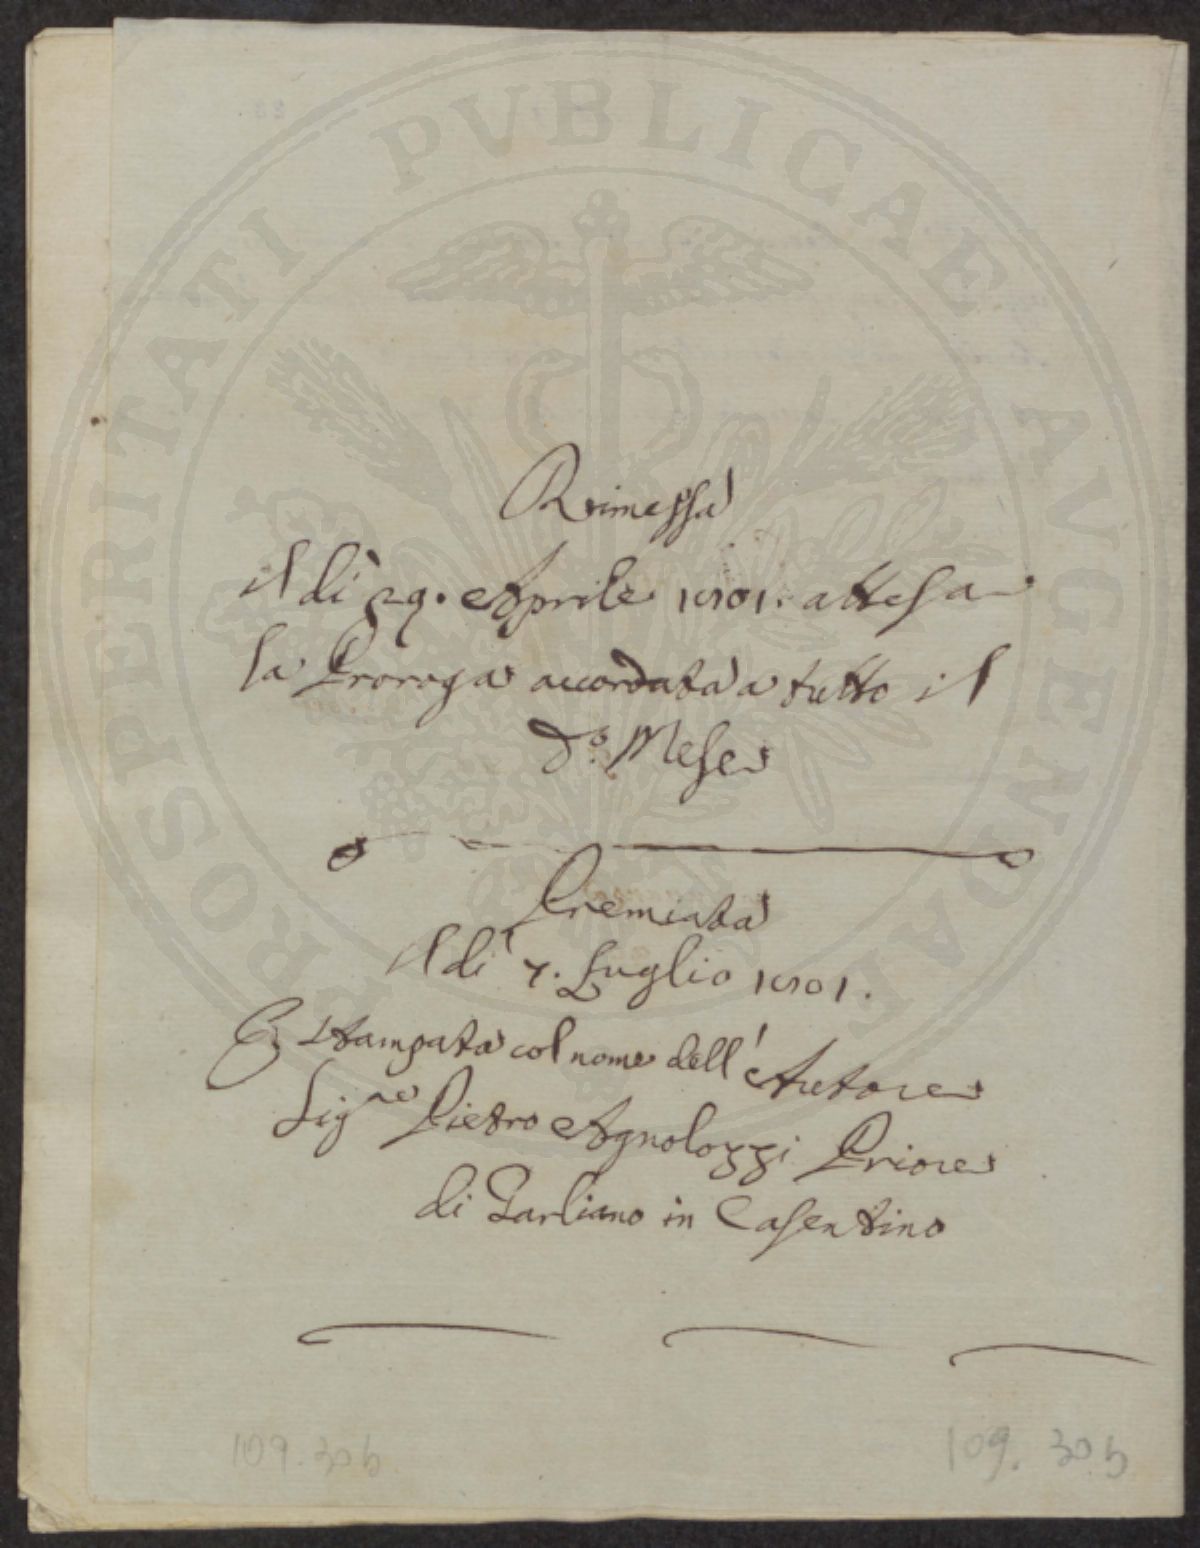 PROSPERITATI PUBLICAE AUGENDAE
Rimessa
il dì 29. Aprile 1801. attesa
la Proroga accordata a tutto il
do. Mese
Premiata
Il dì 7. Luglio 1801.
E stampata col nome dell'Autore
Sigre Pietro Agnolozzi Priore
di Tarliano in Casentino
109.30b
109. 30 b